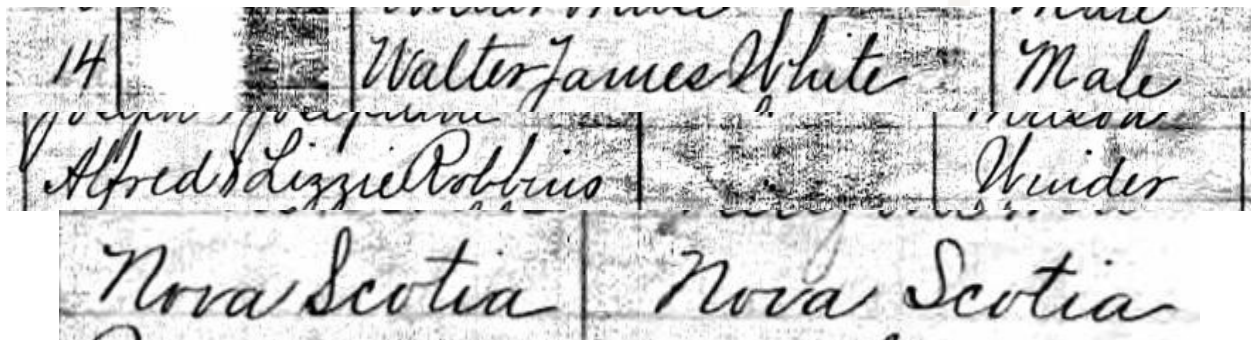 14 Walter James White Male
Alfred & Lizzie Robbins Winder
Nova Scotia Nova Scotia